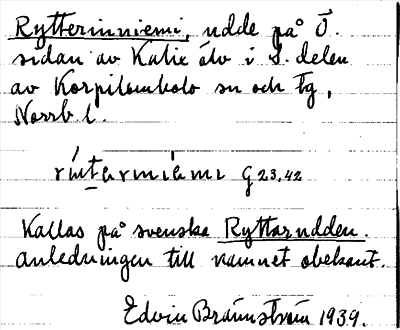 Rytterinniemi, udde på Ö.
sidan av Kalix älv i S. delen
av Korpilombolo sn och tg,
Norrb. l.
G 23,42
Kallas på svenska Ryttarudden.
Anledningen till namnet obekant.
Edvin Brännström 1939.